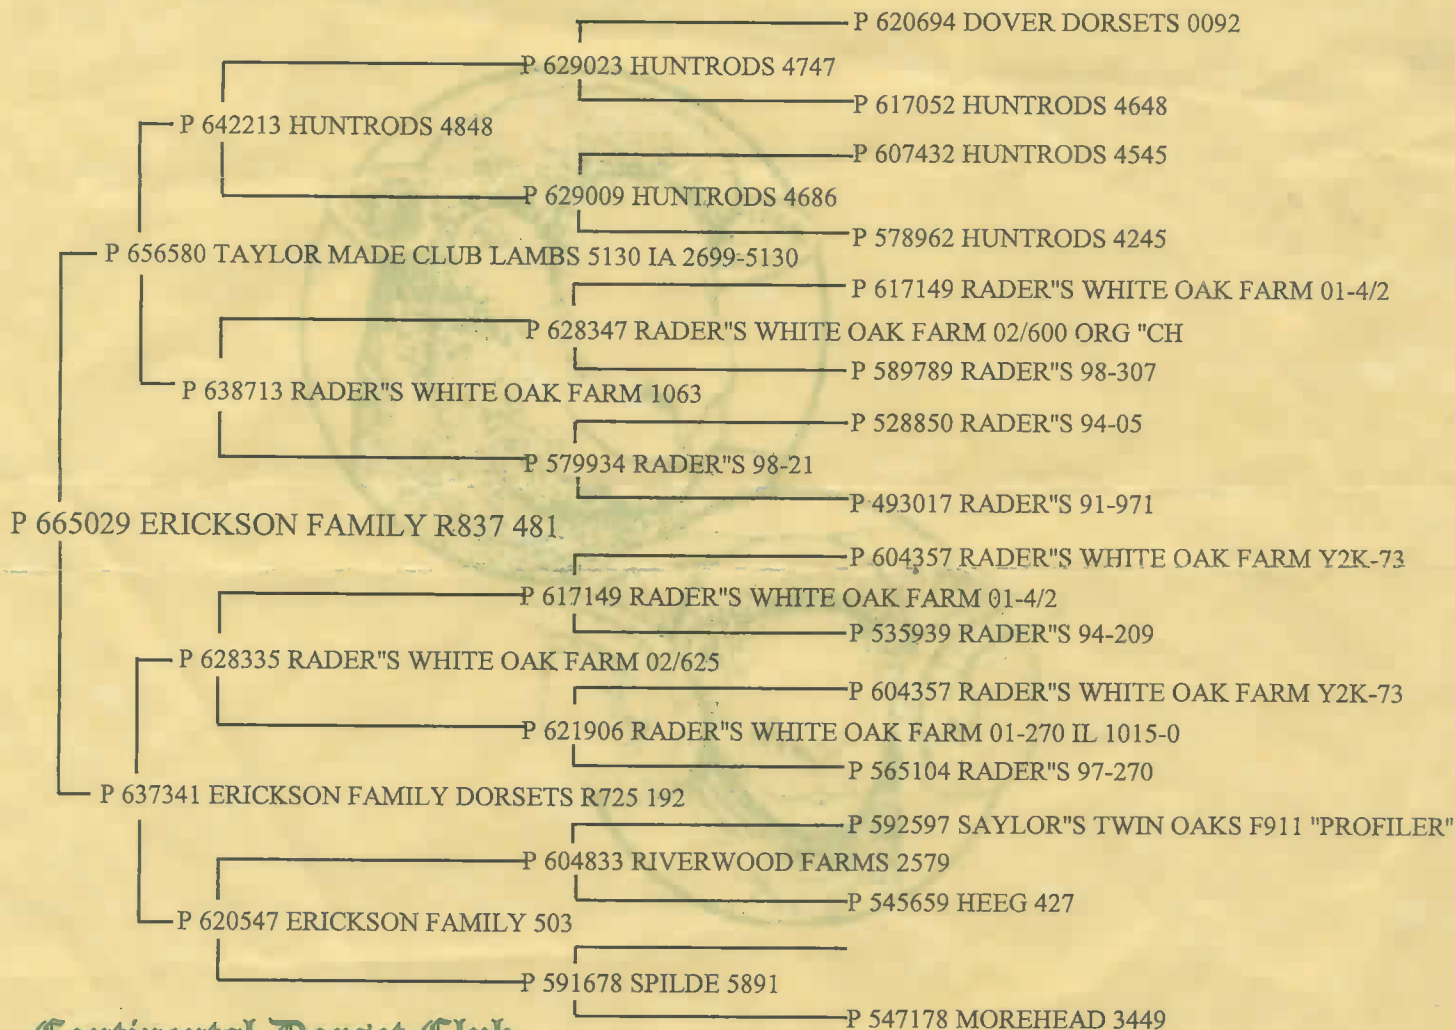 P 620694 DOVER DORSETS 0092
P 629023 HUNTRODS 4747
P 617052 HUNTRODS 4648
P 642213 HUNTRODS 4848
P 607432 HUNTRODS 4545
P 629009 HUNTRODS 4686
P 578962 HUNTRODS 4245
P 656580 TAYLOR MADE CLUB LAMBS 5130 IA 2699-5130
P 617149 RADER"S WHITE OAK FARM 01-4/2
P 628347 RADER"S WHITE OAK FARM 02/600 ORG "CH
P 589789 RADER"S 98-307
P 638713 RADER"S WHITE OAK FARM 1063
P 528850 RADER"S 94-05
P 579934 RADER"S 98-21
P 493017 RADER"S 91-971
P 665029 ERICKSON FAMILY R837 481
P 604357 RADER"S WHITE OAK FARM Y2K-73
P 617149 RADER"S WHITE OAK FARM 01-4/2
P 535939 RADER"S 94-209
P 628335 RADER"S WHITE OAK FARM 02/625
P 604357 RADER"S WHITE OAK FARM Y2K-73
P 621906 RADER"S WHITE OAK FARM 01-270 IL 1015-0
P 565104 RADER"S 97-270
P 637341 ERICKSON FAMILY DORSETS R725 192
P 592597 SAYLOR"S TWIN OAKS F911 "PROFILER"
P 604833 RIVERWOOD FARMS 2579
P 545659 HEEG 427
P 620547 ERICKSON FAMILY 503
P 591678 SPILDE 5891
P 547178 MOREHEAD 3449
Continental Dorset Club